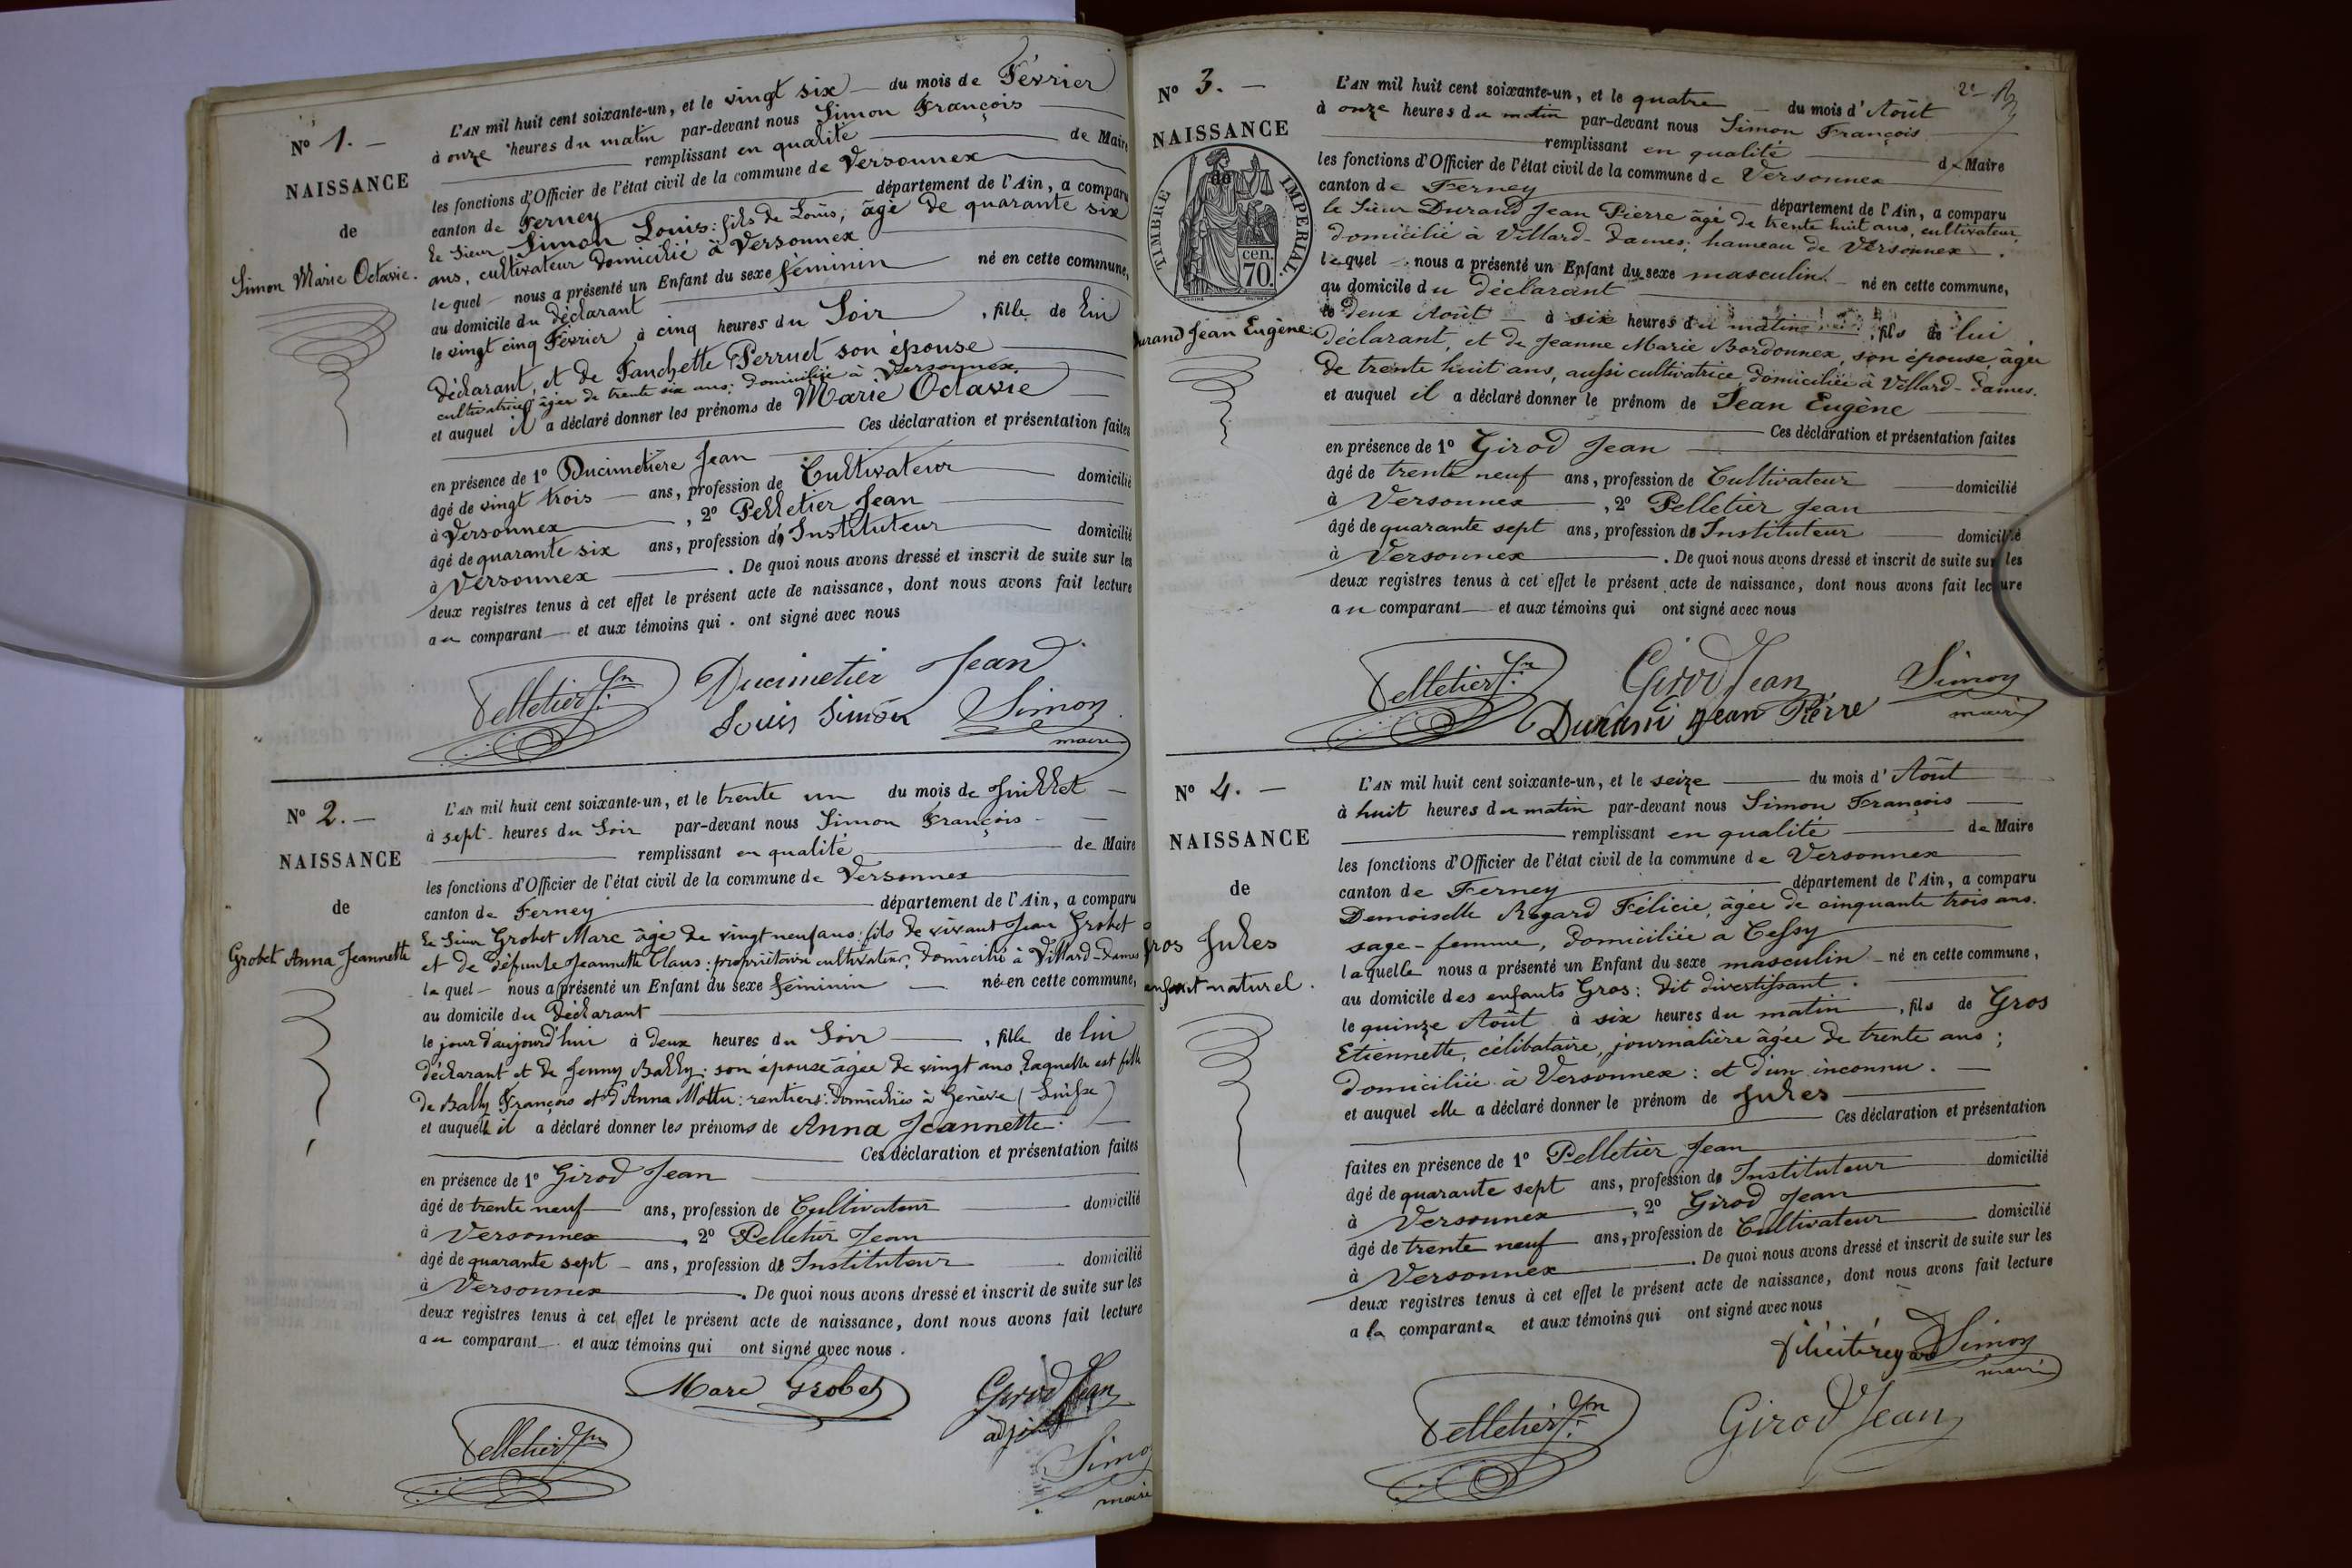 N° 1. —
NAISSANCE
de
Simon Marie Octavie.
L'AN mil huit cent soixante-un, et le vingt six — du mois de Février
à onze heures du matin par-devant nous Simon François
remplissant en qualité de Maire
les fonctions d'Officier de l'état civil de la commune de Versonnex
canton de Ferney département de l'Ain, a comparu
le Sieur Simon Louis: fils de Louis, âgé de quarante six
ans, cultivateur domicilié à Versonnex
lequel nous a présenté un Enfant du sexe féminin né en cette commune,
au domicile du déclarant
le vingt cinq Février à cinq heures du Soir, fille de lui
déclarant, et de Fanchette Perrudet son épouse
cultivatrice âgée de trente six ans: domiciliée à Versonnex.
et auquel il a déclaré donner les prénoms de Marie Octavie
Ces déclaration et présentation faites
en présence de 1° Ducimetière Jean
âgé de vingt trois — ans, profession de Cultivateur domicilié
à Versonnex, 2° Pelletier Jean
âgé de quarante six ans, profession d' Instituteur domicilié
à Versonnex. De quoi nous avons dressé et inscrit de suite sur les
deux registres tenus à cet effet le présent acte de naissance, dont nous avons fait lecture
au comparant — et aux témoins qui ont signé avec nous
Pelletier Jn Ducimetier Jean
Louis Simon Simon
maire
N° 2. —
NAISSANCE
de
Grobet Anna Jeannette
L'AN mil huit cent soixante-un, et le trente un du mois de Juillet —
à sept heures du Soir par-devant nous Simon François
remplissant en qualité de Maire
les fonctions d'Officier de l'état civil de la commune de Versonnex
canton de Ferney département de l'Ain, a comparu
le Sieur Grobet Marc âgé de vingt neuf ans: fils de vivant Jean Grobet
et de défunte Jeannette Claus: propriétaire cultivateur, domicilié à Villard-Dames
lequel — nous a présenté un Enfant du sexe féminin — né en cette commune,
au domicile du déclarant
le jour d'aujourd'hui à deux heures du Soir, fille de lui
déclarant et de Jenny Bally: son épouse âgée de vingt ans laquelle est fille
de Bally François et d'Anna Mottu: rentiers: domiciliés à Genève (Suisse)
et auquelle il a déclaré donner les prénoms de Anna Jeannette.
Ces déclaration et présentation faites
en présence de 1° Girod Jean
âgé de trente neuf ans, profession de Cultivateur domicilié
à Versonnex, 2° Pelletier Jean
âgé de quarante sept — ans, profession d' Instituteur domicilié
à Versonnex. De quoi nous avons dressé et inscrit de suite sur les
deux registres tenus à cet effet le présent acte de naissance, dont nous avons fait lecture
au comparant — et aux témoins qui ont signé avec nous.
Marc Grobet Girod Jean
adjoint
Pelletier Jn Simon
maire
2e
N° 3. —
NAISSANCE
de
TIMBRE IMPERIAL.
70 cen.
Durand Jean Eugène.
L'AN mil huit cent soixante-un, et le quatre — du mois d'Août
à onze heures du matin par-devant nous Simon François
remplissant en qualité de Maire
les fonctions d'Officier de l'état civil de la commune de Versonnex
canton de Ferney département de l'Ain, a comparu
le Sieur Durand Jean Pierre âgé de trente huit ans, cultivateur,
domicilié à Villard-Dames: hameau de Versonnex.
lequel nous a présenté un Enfant du sexe masculin. — né en cette commune,
au domicile du déclarant
le deux Août à six heures du matin, fils de lui
déclarant, et de Jeanne Marie Bordonnex, son épouse, âgée
de trente huit ans, aussi cultivatrice domiciliée à Villard-Dames.
et auquel il a déclaré donner le prénom de Jean Eugène
Ces déclaration et présentation faites
en présence de 1° Girod Jean
âgé de trente neuf ans, profession de Cultivateur domicilié
à Versonnex, 2° Pelletier Jean
âgé de quarante sept ans, profession d' Instituteur domicilié
à Versonnex. De quoi nous avons dressé et inscrit de suite sur les
deux registres tenus à cet effet le présent acte de naissance, dont nous avons fait lecture
au comparant — et aux témoins qui ont signé avec nous
Pelletier Jn Girod Jean Simon
Durand Jean Pierre maire
N° 4. —
NAISSANCE
de
Gros Jules
enfant naturel.
L'AN mil huit cent soixante-un, et le seize du mois d'Août
à huit heures du matin par-devant nous Simon François
remplissant en qualité de Maire
les fonctions d'Officier de l'état civil de la commune de Versonnex
canton de Ferney département de l'Ain, a comparu
Demoiselle Regard Félicie, âgée de cinquante trois ans.
sage-femme, domiciliée à Cessy
laquelle nous a présenté un Enfant du sexe masculin né en cette commune,
au domicile des enfants Gros: dit divertissant.
le quinze Août à six heures du matin, fils de Gros
Etiennette, célibataire, journalière âgée de trente ans;
domiciliée à Versonnex: et d'un inconnu. —
et auquel elle a déclaré donner le prénom de Jules
Ces déclaration et présentation
faites en présence de 1° Pelletier Jean
âgé de quarante sept ans, profession d' Instituteur domicilié
à Versonnex, 2° Girod Jean
âgé de trente neuf ans, profession de Cultivateur domicilié
à Versonnex. De quoi nous avons dressé et inscrit de suite sur les
deux registres tenus à cet effet le présent acte de naissance, dont nous avons fait lecture
a la comparante et aux témoins qui ont signé avec nous
félicité regard Simon
maire
Pelletier Jn Girod Jean